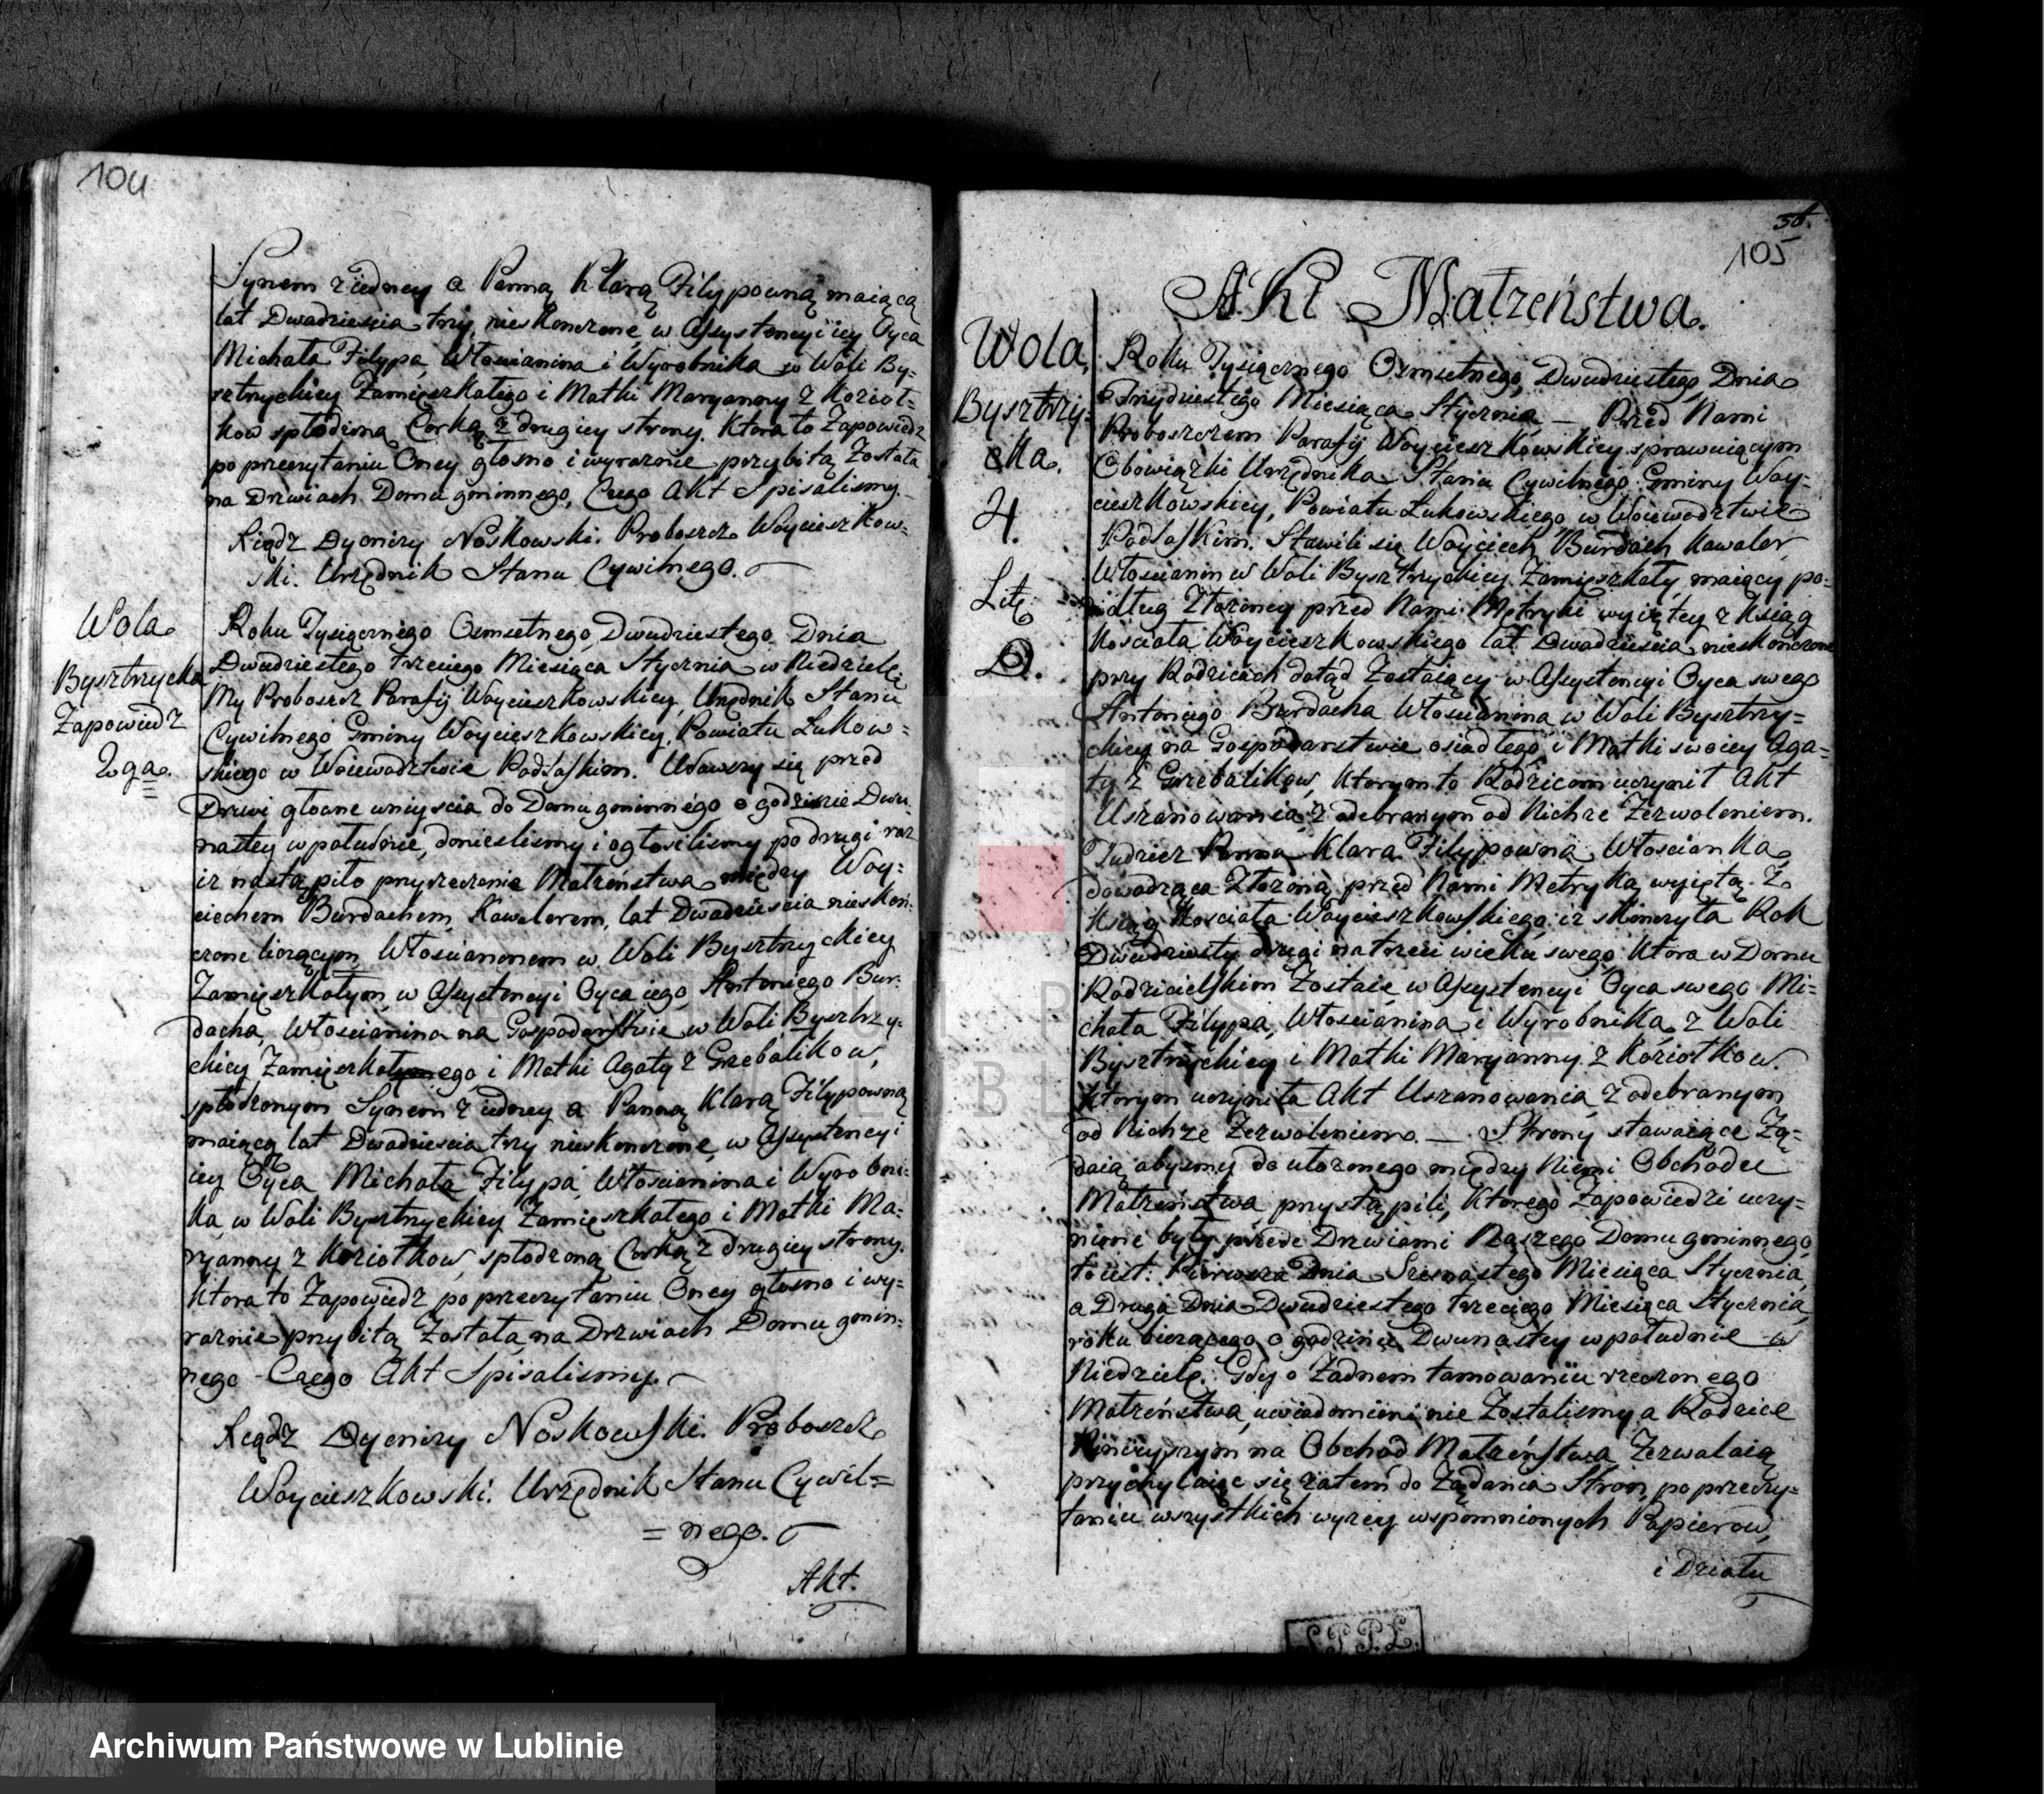 104
Synem z iedney a Panną Klarą Filypowną maiącą
lat Dwadzieścia trzy nieskonczone, w Assystencyi iey Oyca
Michała Filypa, Włościanina i Wyrobnika w Woli By=
sztrzyckiey Zamięszkałego i Matki Maryanny z Kozioł=
kow spłodzoną Corką z drugiey strony. Ktora to Zapowiedz
po przeczytaniu Oney głosno i wyraznie przybitą Została
na Drzwiach Domu gminnego, Czego Akt Spisalismy.
Xiądz Dyonizy Noskowski. Proboszcz Woycieszkow=
ski. Urzędnik Stanu Cywilnego.
Wola
Bysztrzycka
Zapowiedz
2ga.
Roku Tysiącznego Osmsetnego, Dwudziestego Dnia
Dwudziestego trzeciego Miesiąca Stycznia w Niedzielę
My Proboszcz Parafij Woycieszkowskiey, Urzędnik Stanu
Cywilnego Gminy Woycieszkowskiey, Powiatu Łukow=
skiego w Woiewodztwie Podlaskim. Udawszy się przed
Drzwi głowne wniyscia do Domu gminnego o godzinie Dwu=
nastey w południe, doniesliśmy i ogłosilismy po drugi raz
iz nastąpiło przyrzeczenie Małżeństwa między Woy=
ciechem Burdachem, Kawalerem, lat Dwadzieścia nieskoń=
czone liczącym, Włościaninem w Woli Bysztrzyckiey
Zamięszkałym, w Assystencyi Oyca iego, Antoniego Bur=
dacha, Włościanina na Gospodarstwie w Woli Bysztrzy=
ckiey Zamięszkałego i Matki Agaty z Grzebalikow,
spłodzonym Synem z iedney a Panną Klarą Filypowną
maiącą lat Dwadzieścia trzy nieskonczone, w Assystencyi
iey Oyca Michała Filypa, Włościanina i Wyrobni=
ka w Woli Bysztrzyckiey Zamięszkałego i Matki Ma=
ryanny z Koziołkow, spłodzoną Corką z drugiey strony.
Ktora to Zapowiedz po przeczytaniu Oney głosno i wy=
raznie przybitą Została, na Drzwiach Domu gmin=
nego - Czego Akt Spisalismy.
Xiądz Dyonizy Noskowski. Proboszcz
Woycieszkowski. Urzędnik Stanu Cywil=
= nego.
Akt.
105
Akt Małżeństwa.
Wola
Bysztrzy=
cka.
4.
Lit.
D.
Roku Tysiącznego Osmsetnego, Dwudziestego, Dnia
Trzydziestego Miesiąca Stycznia, — Przed Nami
Proboszczem Parafij Woycieszkowskiey sprawuiącym
Obowiązki Urzędnika Stanu Cywilnego Gminy Woy=
cieszkowskiey, Powiatu Łukowskiego w Woiewodztwie
Podlaskim. Stawili się Woyciech Burdach Kawaler,
Włościanin w Woli Bysztrzyckiey Zamięszkały, maiący po=
dług Złożoney przed Nami Metryki wyiętey z Ksiąg
Kościoła Woycieszkowskiego lat Dwadzieścia nieskonczone
przy Rodzicach dotąd Zostaiący w Assystencyi Oyca swego
Antoniego Burdacha Włościanina w Woli Bysztrzy=
ckiey na Gospodarstwie osiadłego, i Matki swoiey Aga=
ty z Grzebalikow, ktorym to Rodzicom uczynił Akt
Uszanowania, z odebranym od Nichże Zezwoleniem.
Tudziez Panna Klara Filypowna, Włościanka,
dowodząca Złożoną przed Nami Metryką wyiętą z
Ksiąg Kościoła Woycieszkowskiego, iż skonczyła Rok
Dwudziesty drugi na trzeci wieku swego, Ktora w Domu
Rodzicielskim Zostaie, w Assystencyi Oyca swego Mi=
chała Filypa, Włościanina i Wyrobnika z Woli
Bysztrzyckiey i Matki Maryanny z Koziołkow.
Ktorym uczyniła Akt Uszanowania, z odebranym
od Nichże Zezwoleniem. — Strony stawaiące Żą=
daią abyśmy do ułożonego między Niemi Obchodu
Małżeństwa przystąpili, Ktorego Zapowiedzi uczy=
nione były przede Drzwiami Naszego Domu gminnego,
to iest: Pierwsza Dnia Szesnastego Miesiąca Stycznia,
a Druga Dnia Dwudziestego trzeciego Miesiąca Stycznia,
roku bieżącego o godzinie Dwunastey w południe w
Niedzielę. Gdy o Żadnem tamowaniu rzeczonego
Małżeństwa, uwiadomieni nie Zostalismy, a Rodzice
Ninieyszym na Obchod Małżeństwa Zezwalaią
przychylaiąc się zatem do Żądania Stron, po przeczy=
taniu wszystkich wyzey wspomnionych Papierow,
i Działu
Archiwum Państwowe w Lublinie